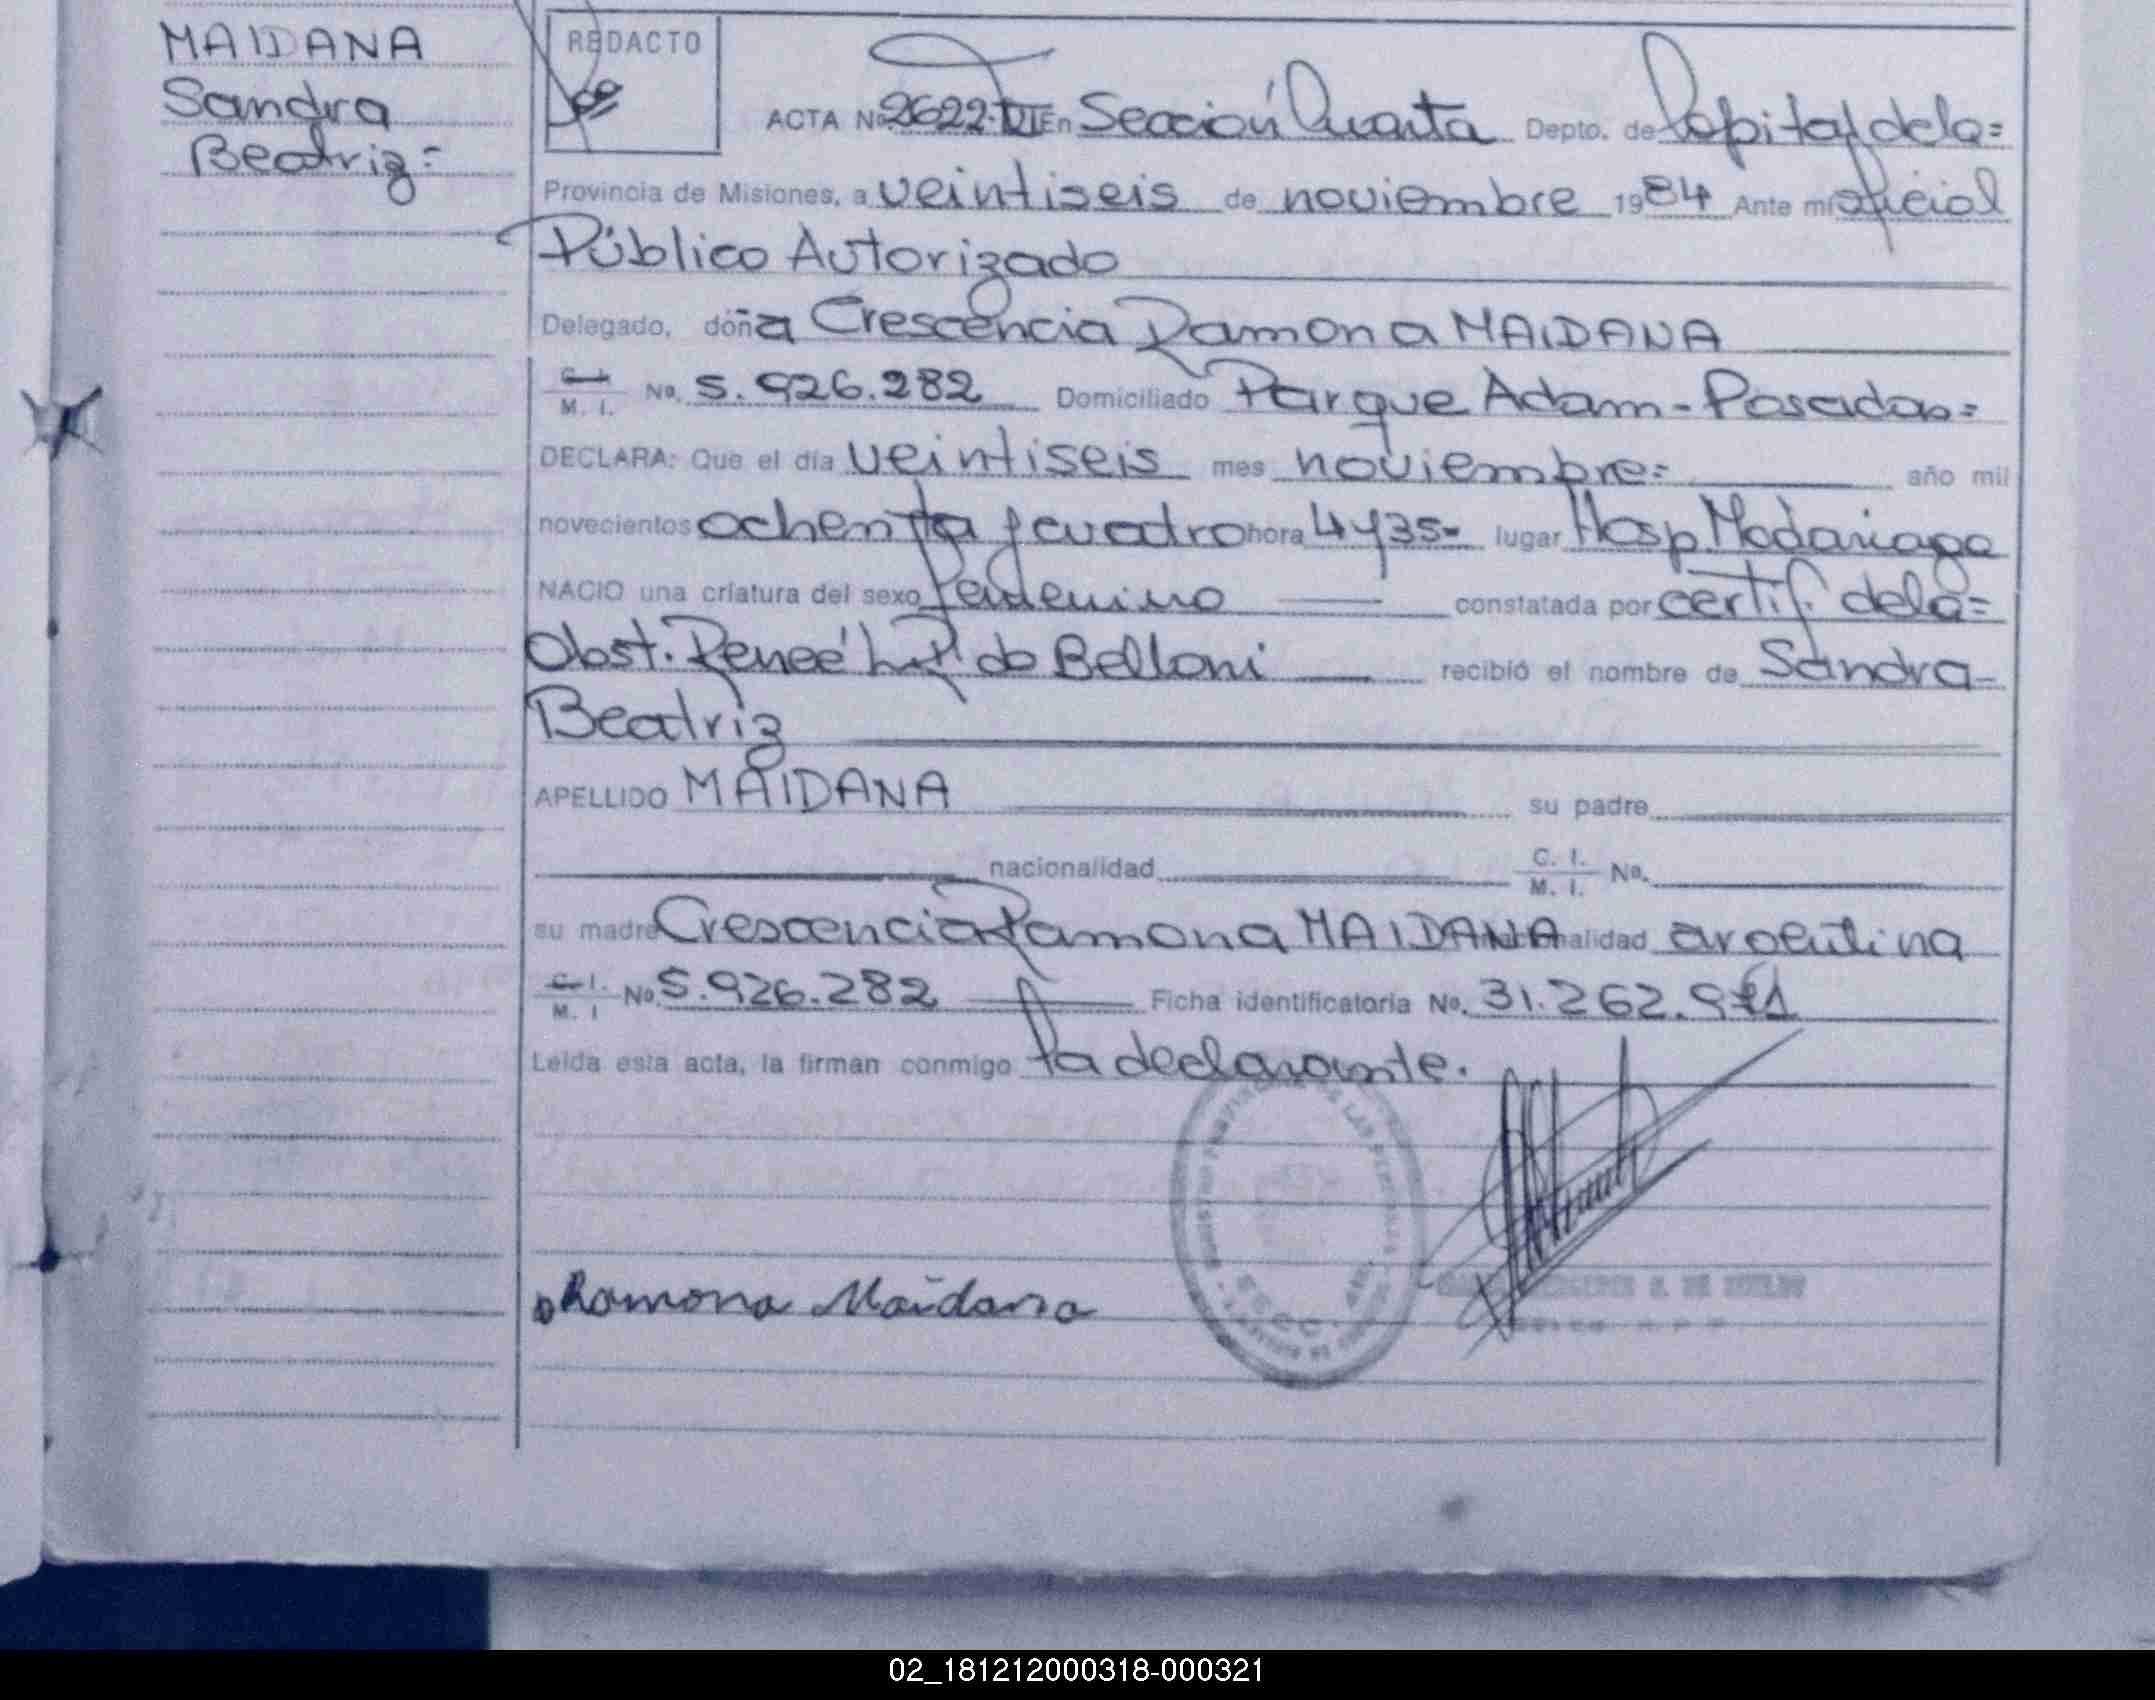 MAIDANA
Sandra
Beatriz=
REDACTO
ACTA No 2622-VII En Sección Cuarta Depto. de Capital de la=
Provincia de Misiones, a veintiseis de noviembre 1984 Ante mi oficial
Público Autorizado
Delegado, doña Crescencia Ramona MAIDANA
C. I. M. I. No. 5.926.282 Domiciliado Parque Adam-Posadas=
DECLARA: Que el día veintiseis mes noviembre= año mil
novecientos ochenta y cuatro hora 4 y 35- lugar Hosp Madariaga
NACIO una criatura del sexo femenino constatada por certif. de la=
Obst. Reneé de Belloni recibió el nombre de Sandra-
Beatriz
APELLIDO MAIDANA su padre
nacionalidad C. I. M. I. No.
su madre Crescencia Ramona MAIDANA nacionalidad argentina
C. I. M. I No. 5.926.282 Ficha identificatoria No. 31.262.9
Leída esta acta, la firman conmigo la declarante.
Ramona Maidana
02_181212000318-000321